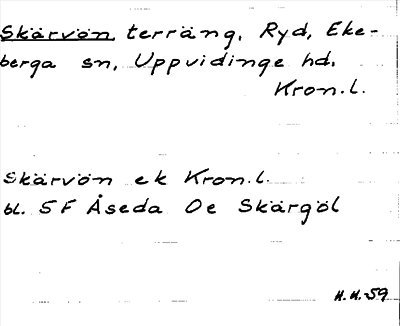 Skärvön terräng, Ryd, Eke-
berga sn, Uppvidinge hd.
Kron.l.
Skärvön ek Kron.l.
bl. 5F Åseda Oe Skärgöl
H.H.-59